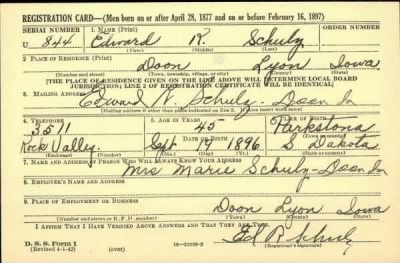 REGISTRATION CARD—(Men born on or after April 28, 1877 and on or before February 16, 1897)
SERIAL NUMBER 1. NAME (Print)
U 844 Edward R. Schulz
(First) (Middle) (Last)
2. PLACE OF RESIDENCE (Print)
Doon Lyon Iowa
(Number and street) (Town, township, village, or city) (County) (State)
[THE PLACE OF RESIDENCE GIVEN ON THE LINE ABOVE WILL DETERMINE LOCAL BOARD
JURISDICTION; LINE 2 OF REGISTRATION CERTIFICATE WILL BE IDENTICAL]
3. MAILING ADDRESS
Edward R. Schulz - Doon Ia
[Mailing address if other than place indicated on line 2. If same insert word same]
4. TELEPHONE 5. AGE IN YEARS 6. PLACE OF BIRTH
3511 45 Parkstona
DATE OF BIRTH
Rock Valley Sept 19 1896 S Dakota
(Exchange) (Number) (Mo.) (Day) (Yr.) (State or country)
7. NAME AND ADDRESS OF PERSON WHO WILL ALWAYS KNOW YOUR ADDRESS
Mrs Marie Schulz - Doon Ia
8. EMPLOYER'S NAME AND ADDRESS
9. PLACE OF EMPLOYMENT OR BUSINESS
Doon Lyon Iowa
(Number and street or R. F. D. number) (Town) (County) (State)
I AFFIRM THAT I HAVE VERIFIED ABOVE ANSWERS AND THAT THEY ARE TRUE.
Ed R Schulz
D. S. S. Form 1
(Revised 4-1-42) (over) (Registrant's signature)